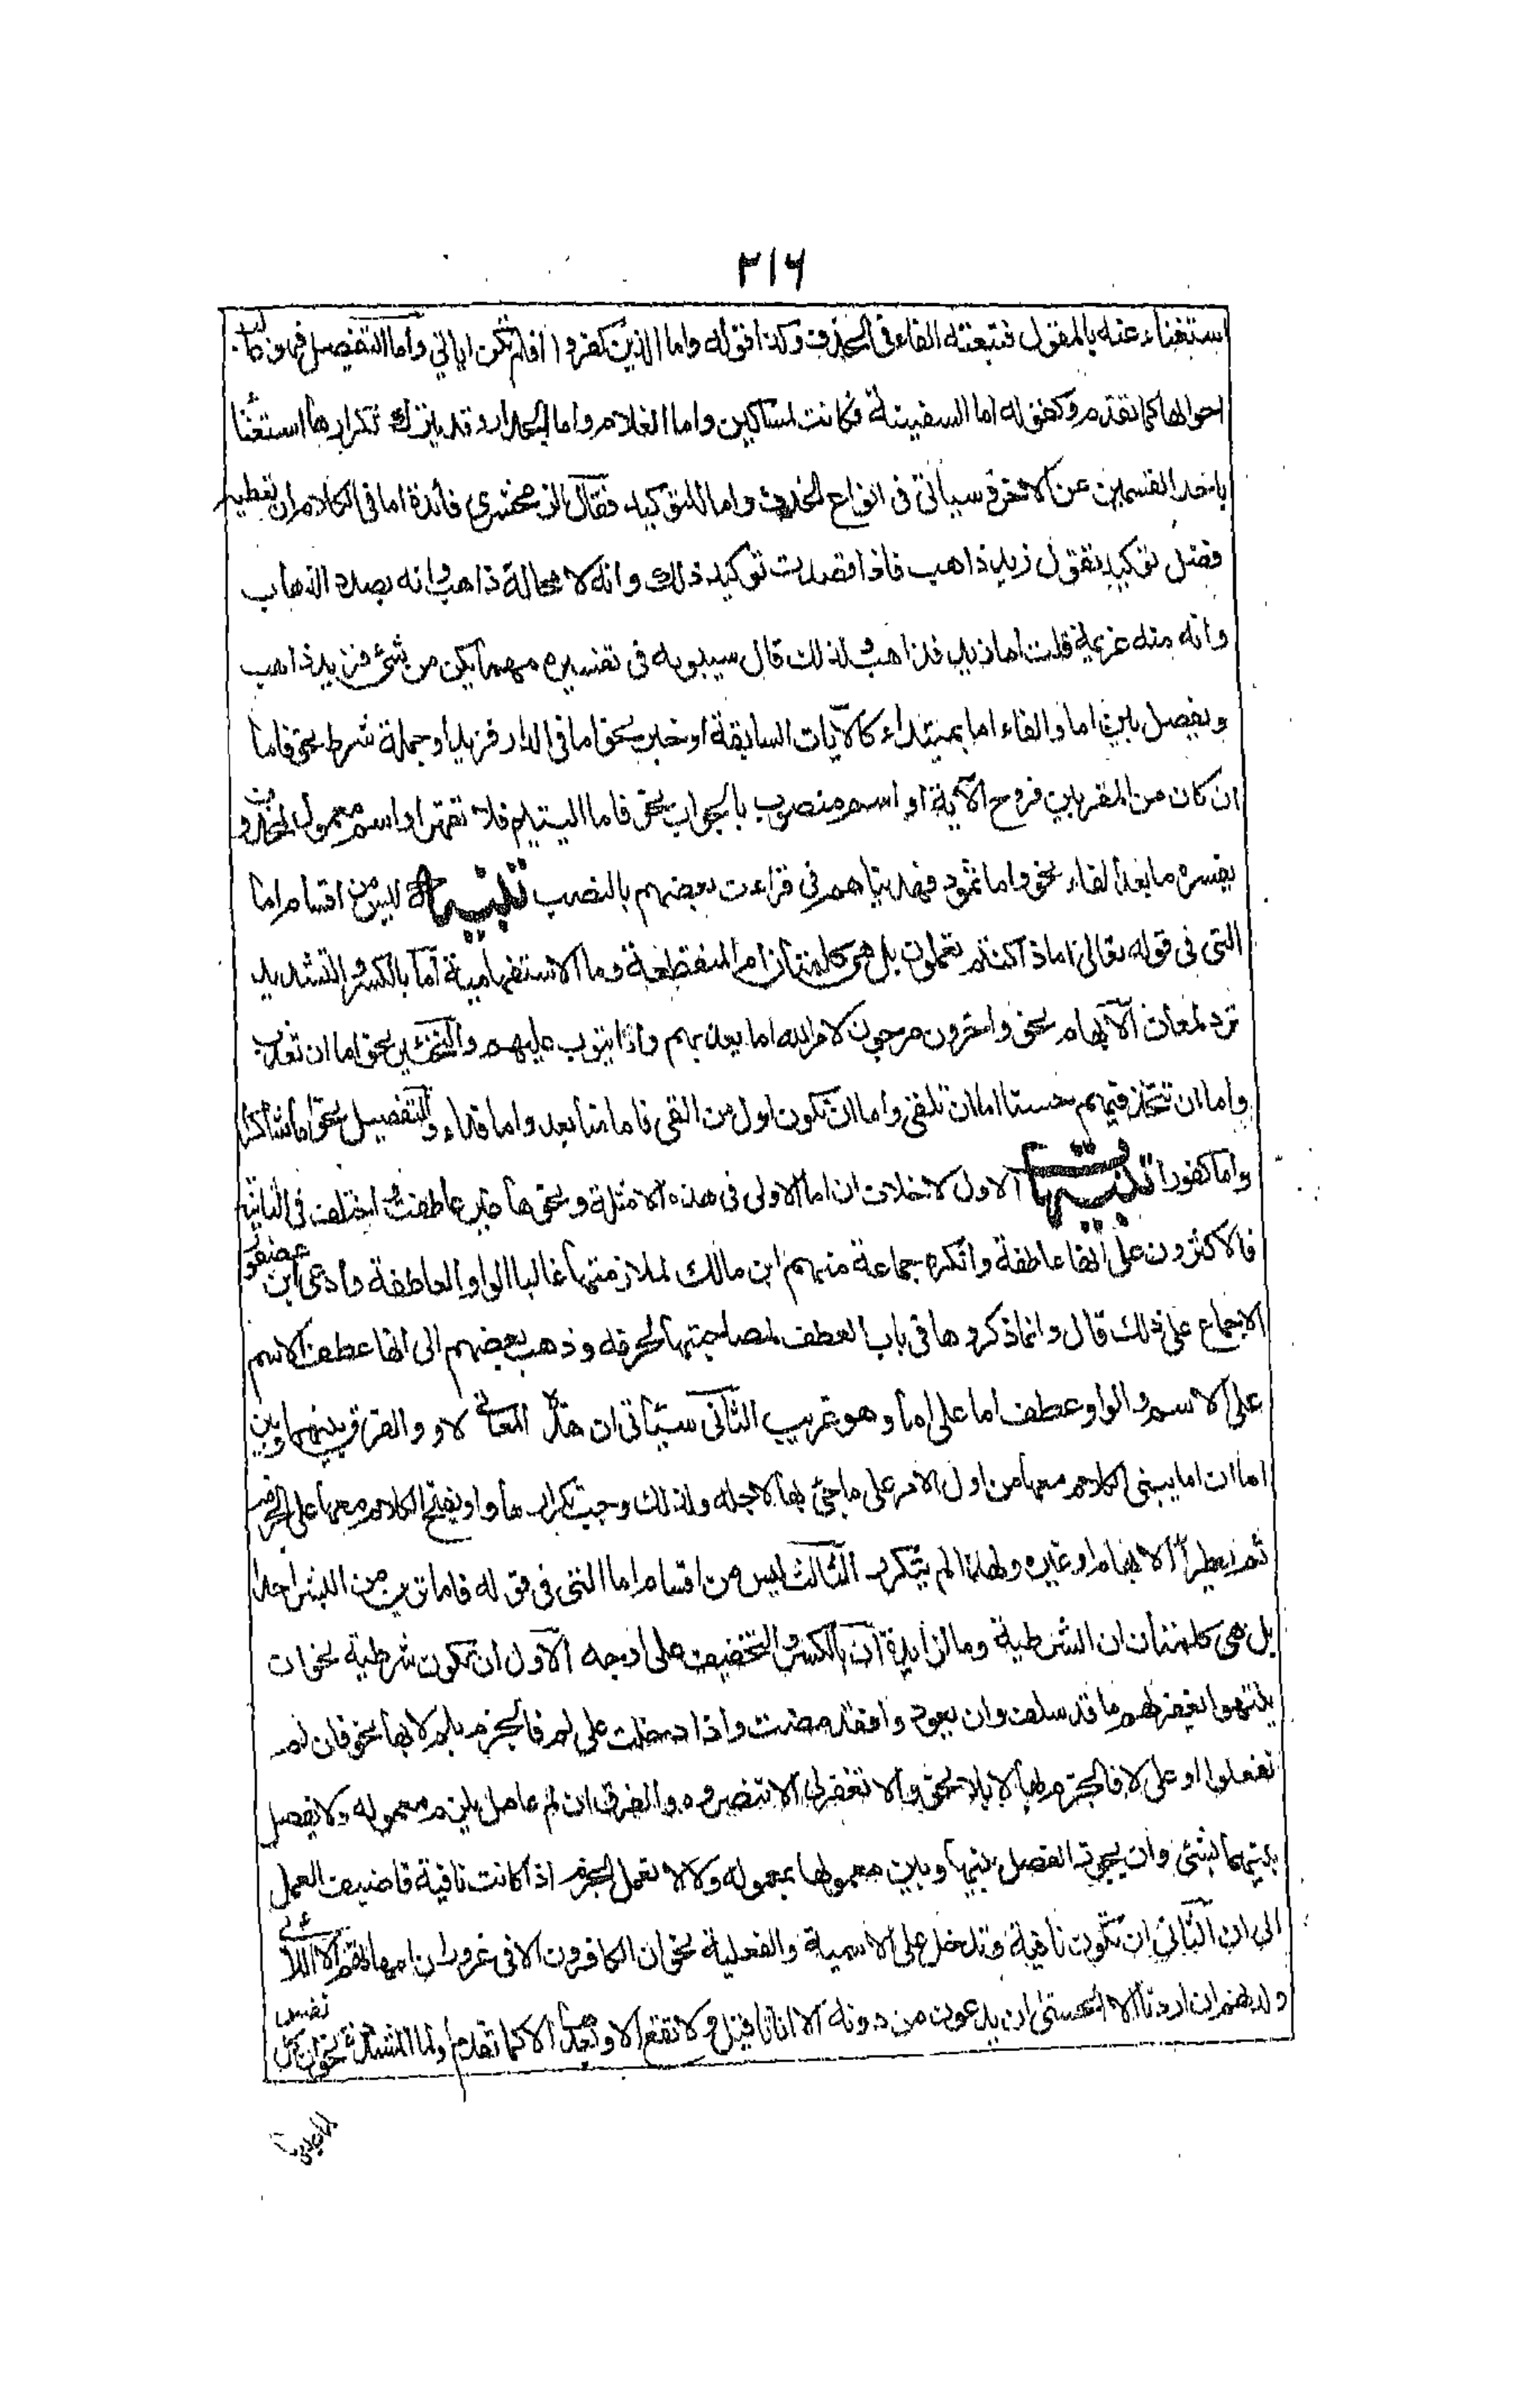 ٣١٦
استغناء عنه بالمقول فتبعته الفاء فى الحذف وكذا قوله واما الذين كفروا افلم تكن اياتي واما التفصيل فهو غالب
احوالها كما تقدم وكقوله اما السفينة فكانت لمساكين واما الغلام واما الجدار وقد يترك تكرارها استغنا
باحد القسمين عن الاخر وسياتى فى انواع الحذف واما التوكيد فقال الزمخشرى فائدة اما فى الكلام ان تعطيه
فضل توكيد تقول زيد ذاهب فاذا قصدت توكيد ذلك وانه لا محالة ذاهب وانه بصدد الذهاب
وانه منه عزيمة قلت اما زيد فذاهب ولذلك قال سيبويه فى تفسيره مهما يكن من شئ فزيد ذاهب
ويفصل بين اما والفاء اما بمبتداء كالآيات السابقة او خبر نحو اما فى الدار فزيد او جملة شرط نحو فاما
ان كان من المقربين فروح الآية او اسم منصوب بالجواب نحو فاما اليتيم فلا تقهر او اسم معمول لمحذوف
يفسره ما بعد الفاء نحو واما ثمود فهديناهم فى قراءت بعضهم بالنصب تنبيه ليس من اقسام اما
التى فى قوله تعالى اماذا كنتم تعملون بل هى كلمتان ام المنقطعة وما الاستفهامية اما بالكسر والتشديد
ترد لمعان الابهام نحو واخرون مرجون لامر الله اما يعذبهم واما يتوب عليهم والتخيير نحو اما ان تعذب
واما ان تتخذ فيهم حسنا اما ان تلقى واما ان تكون اول من القى فاما منا بعد واما فداء والتفصيل نحو اما شاكرا
واما كفورا تنبيهات الاول لا خلاف ان اما الاولى فى هذه الامثلة ونحوها غير عاطفة واختلف فى الثانية
فالاكثرون على انها عاطفة وانكره جماعة منهم ابن مالك لملازمتها غالبا الواو العاطفة وادعى ابن عصفور
الاجماع على ذلك قال وانما ذكروها فى باب العطف لمصاحبتها لحرفه وذهب بعضهم الى انها عطفت الاسم
على الاسم والواو عطف اما على اما وهو غريب الثانى سيأتى ان هذه المعانى لاو والفرق بينهما وبين
اما ان اما يبنى الكلام معها من اول الامر على ما جئ بها لاجله ولذلك وجب تكرارها واو يفتح الكلام معها على الجزم
ثم يطرأ الابهام او غيره ولهذا لم يتكرر الثالث ليس من اقسام اما التى فى قوله فاما ترين من البشر احدا
بل هى كلمتان ان الشرطية وما الزايدة ان بالكسر والتخفيف على اوجه الاول ان تكون شرطية نحو ان
ينتهوا يغفر لهم ما قد سلف وان يعودوا فقد مضت واذا دخلت على لم فالجزم بلم لا بها نحو فان لم
تفعلوا او على لا فالجزم بها لا بلا نحو والا تغفر لى الا تنصروه والفرق ان لم عامل يلزم معموله ولا يفصل
بينهما بشئ وان يجوز الفصل بينها وبين معمولها بمعموله ولا لا تعمل الجزم اذا كانت نافية فاضيف العمل
الى ان الثانى ان تكون نافية وتدخل على الاسمية والفعلية نحو ان الكافرون الا فى غرور ان امهاتهم الا اللائى
ولدنهم ان اردنا الا الحسنى ان يدعون من دونه الا اناثا قيل ولا تقع الا وبعدها الا كما تقدم او لما المشددة نحو ان كل نفس